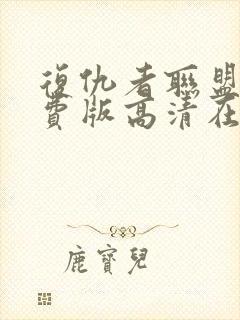 復仇者聯盟
費版高清在
鹿寶兒